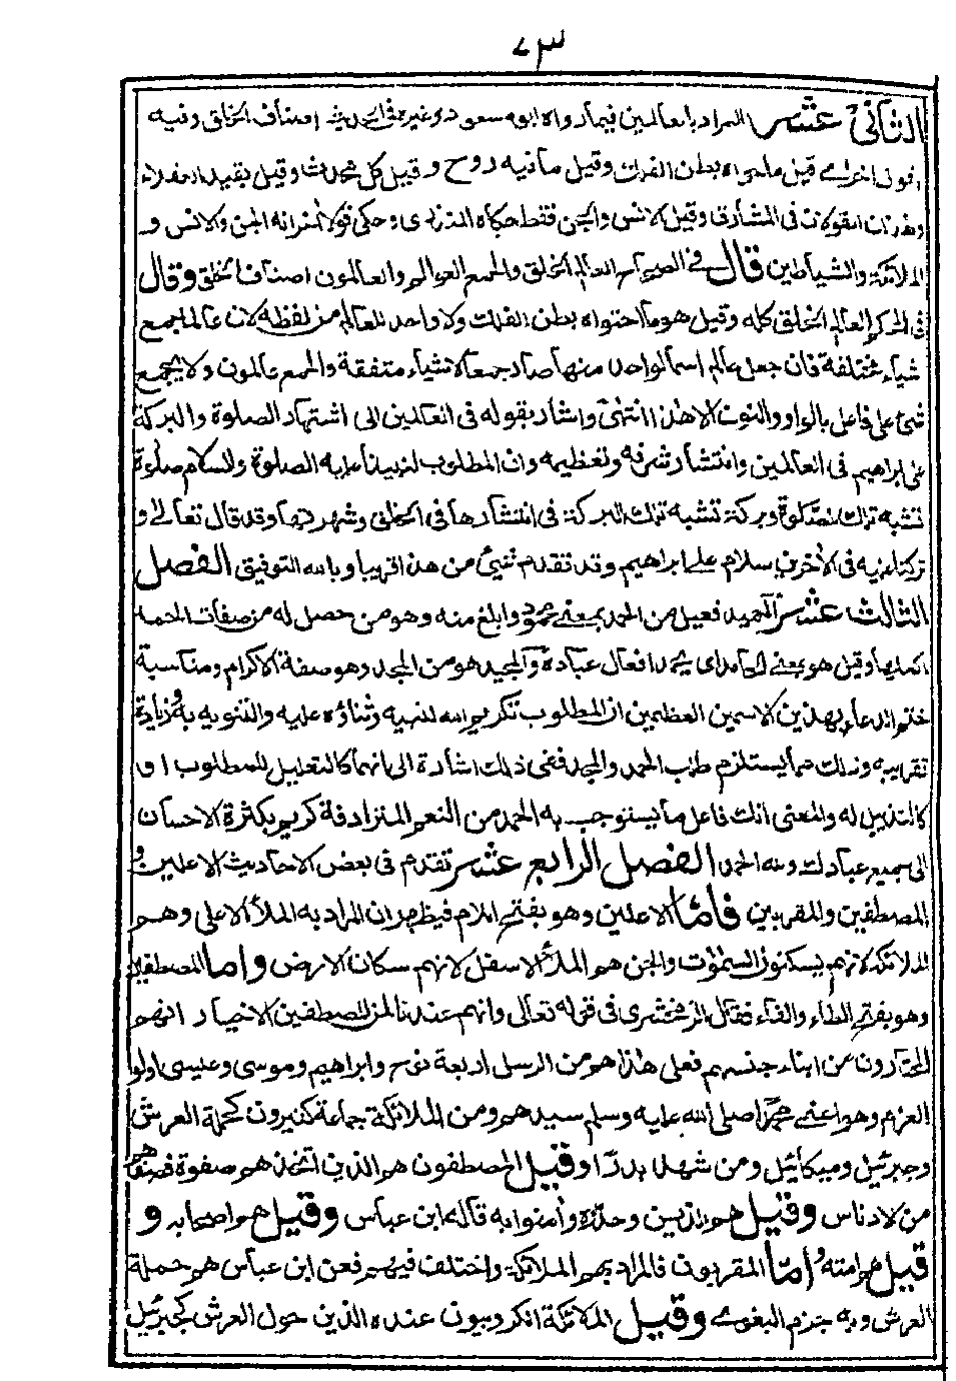 ٧٣
الثانى عشر المراد بالعالمين فيما رواه ابو مسعود وغيره فى الحديث اصناف الخلق وفيه
اقوال اخرى قيل ما حواه بطن الفلك وقيل ما فيه روح وقيل كل محدث وقيل بقيد العقلاء
وهذان القولان فى المشارق وقيل الانس والجن فقط حكاه المنذرى وحكى قولا اخر انه الجن والانس و
الملائكة والشياطين قال فى الصحاح العالم الخلق والجمع العوالم والعالمون اصناف الخلق وقال
فى المحكم العالم الخلق كله وقيل هو ما احتواه بطن الفلك ولا واحد للعالم من لفظه لان عالما جمع
شياء مختلفة فان جعل عالم اسما لواحد منها صار جمعا لاشياء متفقة والجمع عالمون ولا يجمع
شئ على فاعل بالواو والنون الا هذا انتهى واشار بقوله فى العالمين الى اشتهار الصلوة والبركة
على ابراهيم فى العالمين وانتشار شرفه وتعظيمه وان المطلوب لنبينا عليه الصلوة والسلام صلوة
تشبه تلك الصلوة وبركة تشبه تلك البركة فى انتشارها فى الخلق وشهرتها وقد قال تعالى و
تركنا عليه فى الاخرين سلام على ابراهيم وقد تقدم شئ من هذا قريبا وبالله التوفيق الفصل
الثالث عشر الحميد فعيل من الحمد بمعنى محمود وابلغ منه وهو من حصل له من صفات الحمد
اكملها وقيل هو بمعنى الحامد اى يحمد افعال عباده والمجيد هو من المجد وهو صفة الاكرام ومناسبة
ختم الدعاء بهذين الاسمين العظيمين ان المطلوب تكريم الله لنبيه وثناؤه عليه والتنويه به وزيادة
تقريبه وذلك مما يستلزم طلب الحمد والمجد ففى ذلك اشارة الى انهما كالتعليل للمطلوب او
كالتذييل له والمعنى انك فاعل ما يستوجب به الحمد من النعم المترادفة كريم بكثرة الاحسان
الى جميع عبادك ولله الحمد الفصل الرابع عشر تقدم فى بعض الاحاديث الاعلين و
المصطفين والمقربين فاما الاعلين وهو بفتح اللام فيظهر ان المراد به الملأ الاعلى وهم
الملائكة لانهم يسكنون السموات والجن هو الملأ الاسفل لانهم سكان الارض واما المصطفين
وهو بفتح الطاء والفاء فقال الزمخشرى فى قوله تعالى وانهم عندنا لمن المصطفين الاخيار انهم
المختارون من ابناء جنسهم فعلى هذا هو من الرسل اربعة نوح وابراهيم وموسى وعيسى اولوا
العزم وهو اعنى محمدا صلى الله عليه وسلم سيدهم ومن الملائكة جماعة كثيرون كحملة العرش
وجبرئيل وميكائيل ومن شهد بدرا وقيل المصطفون هو الذين اتخذهم صفوة فصفاهم
من الادناس وقيل هم الذين وحدوه وامنوا به قاله ابن عباس وقيل هم اصحابه و
قيل هم امته واما المقربون فالمراد بهم الملائكة واختلف فيهم فعن ابن عباس هم حملة
العرش وبه جزم البغوى وقيل الملائكة الكروبيون عنده الذين حول العرش كجبرئيل